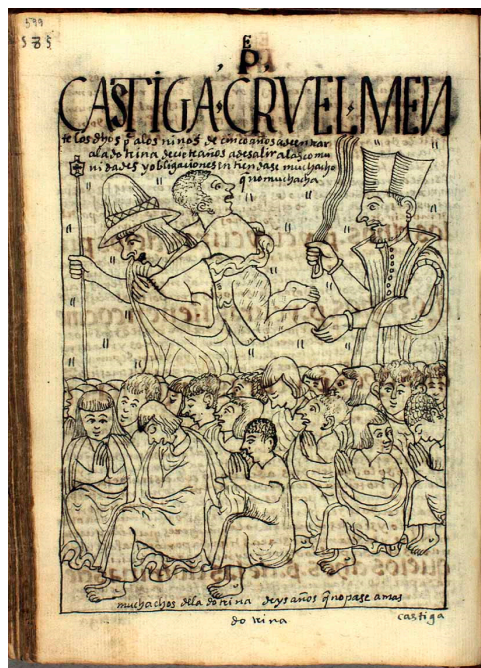 599
585
E
P
CASTIGA, CRVELMEN
te los dhos pᵉ alos niños de cinco años adeentrar
ala dotrina de ciete años a desalir alas comu
nidades y obligaciones entiendase muchacho
q̃ no muchacha
muchachos dela dotrina de ys años q̃ no pase a mas
dotrina
castiga